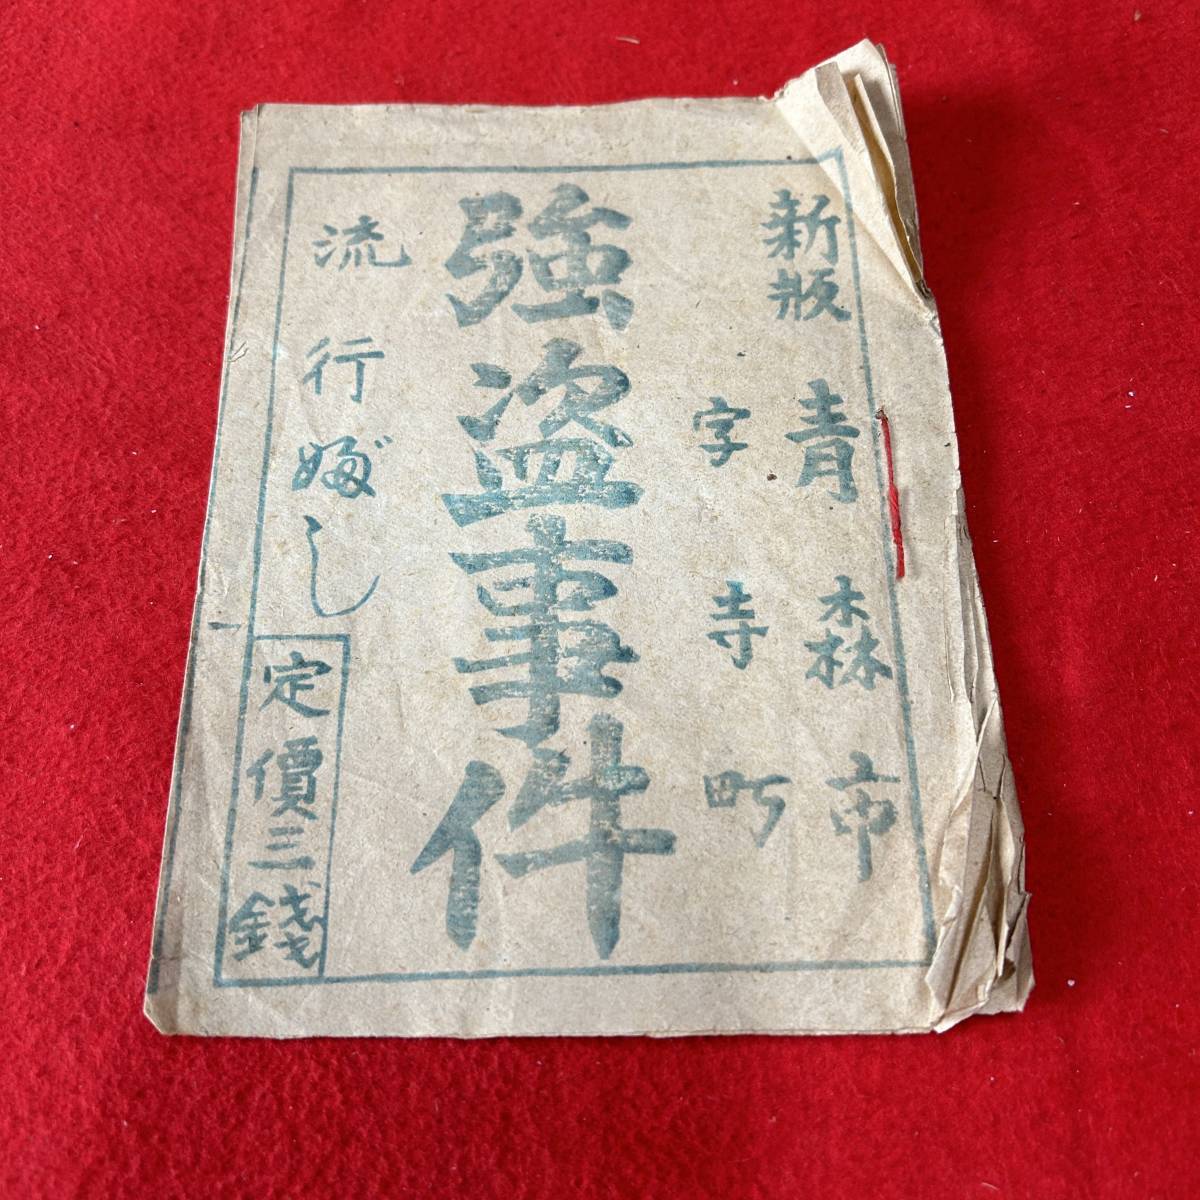 新版 青森市
字寺町
強盗事件
流行ぶし
定價三錢